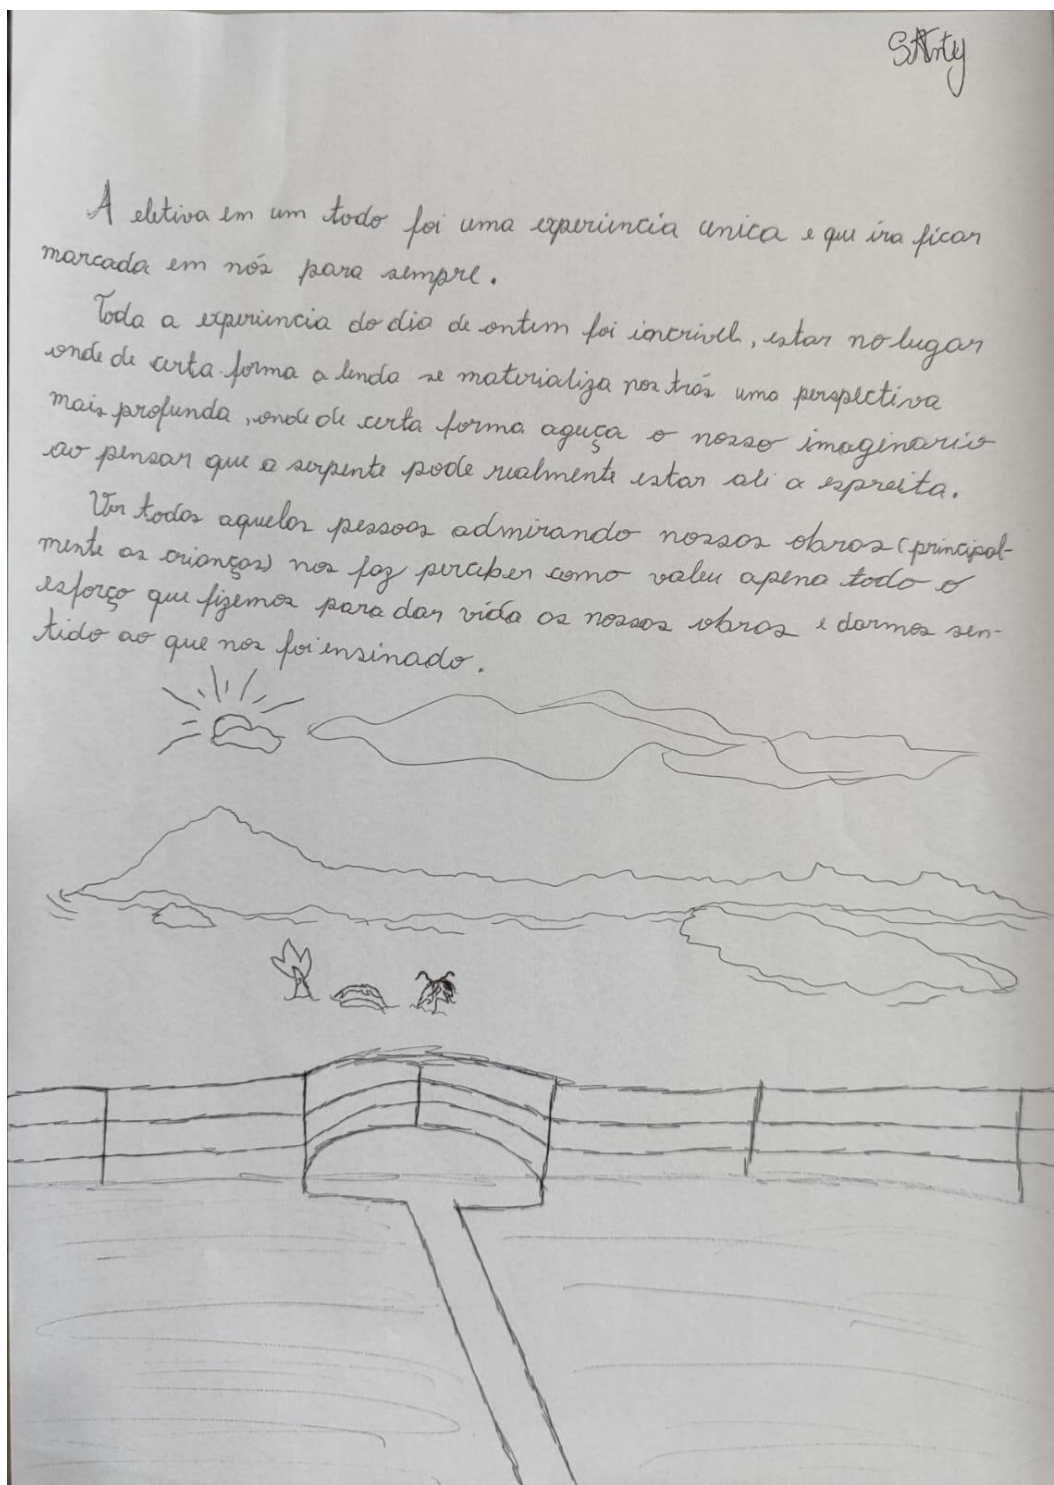 SArty
A eletiva em um todo foi uma experiência unica e que ira ficar
marcada em nós para sempre.
Toda a experiencia do dia de ontem foi incrivel, estar no lugar
onde de certa forma a lenda se materializa nos trás uma perspectiva
mais profunda, onde de certa forma aguça o nosso imaginario
ao pensar que a serpente pode realmente estar ali a espreita.
Ver todas aquelas pessoas admirando nossas obras (principal-
mente as crianças) nos faz perceber como valeu apena todo o
esforço que fizemos para dar vida as nossas obras e darmos sen-
tido ao que nos foi ensinado.